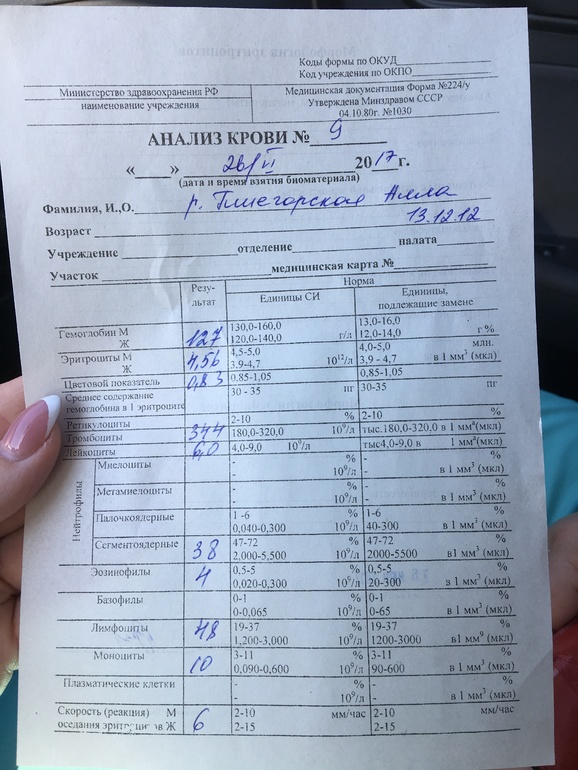 Коды формы по ОКУД
Код учреждения по ОКПО
Министерство здравоохранения РФ
наименование учреждения
Медицинская документация Форма №224/у
Утверждена Минздравом СССР
04.10.80г. №1030
АНАЛИЗ КРОВИ № 9
« » 26/VI 2017 г.
(дата и время взятия биоматериала)
Фамилия, И.,О. р. Алла
Возраст 13.12.12
Учреждение отделение палата
Участок медицинская карта №
Резу-льтат Норма
Единицы СИ Единицы, подлежащие замене
Гемоглобин М 130,0-160,0 13,0-16,0
Ж 127 120,0-140,0 г/л 12,0-14,0 г %
Эритроциты М 4,5-5,0 4,0-5,0 млн.
Ж 4,56 3,9-4,7 10¹²/л 3,9 - 4,7 в 1 мм³ (мкл)
Цветовой показатель 0,83 0,85-1,05 0,85-1,05
Среднее содержание гемоглобина в 1 эритроците 30 - 35 пг 30-35 пг
Ретикулоциты 2-10 % 2-10 %
Тромбоциты 344 180,0-320,0 10⁹/л тыс.180,0-320,0 в 1 мм³(мкл)
Лейкоциты 6,0 4,0-9,0 10⁹/л тыс4,0-9,0 в 1 мм³(мкл)
Нейтрофилы
Миелоциты - % - %
- 10⁹/л - в 1 мм³ (мкл)
Метамиелоциты - % - %
- 10⁹/л - в 1 мм³ (мкл)
Палочкоядерные 1 -6 % 1-6 %
0,040-0,300 10⁹/л 40-300 в 1 мм³ (мкл)
Сегментоядерные 38 47-72 % 47-72 %
2,000-5,500 10⁹/л 2000-5500 в1 мм³ (мкл)
Эозинофилы 4 0,5-5 % 0,5-5 %
0,020-0,300 10⁹/л 20-300 в 1 мм³ (мкл)
Базофилы 0-1 % 0-1 %
0-0,065 10⁹/л 0-65 в 1 мм³ (мкл)
Лимфоциты 48 19-37 % 19-37 %
1,200-3,000 10⁹/л 1200-3000 в1 мм⁹ (мкл)
Моноциты 10 3-11 % 3-11 %
0,090-0,600 10⁹/л 90-600 в 1 мм³ (мкл)
Плазматические клетки - % - %
- 10⁹/л - в 1 мм³ (мкл)
Скорость (реакция) М 2-10 мм/час 2-10 мм/час
оседания эритроцитов Ж 6 2-15 2-15